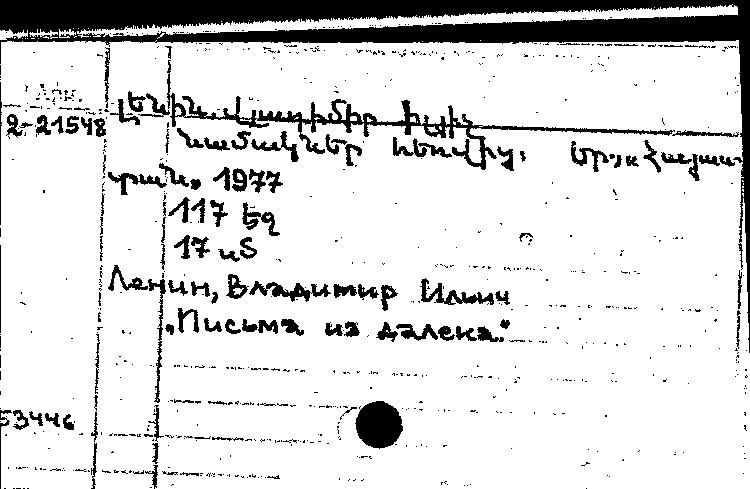 Арм.
Լենին, Վլադիմիր Իլյիչ
2-21548
Նամակներ հեռվից. Եր., «Հայաս-
տան», 1977
117 էջ
17 սՏ
Ленин, Владимир Ильич
„Письма из далека."
53446